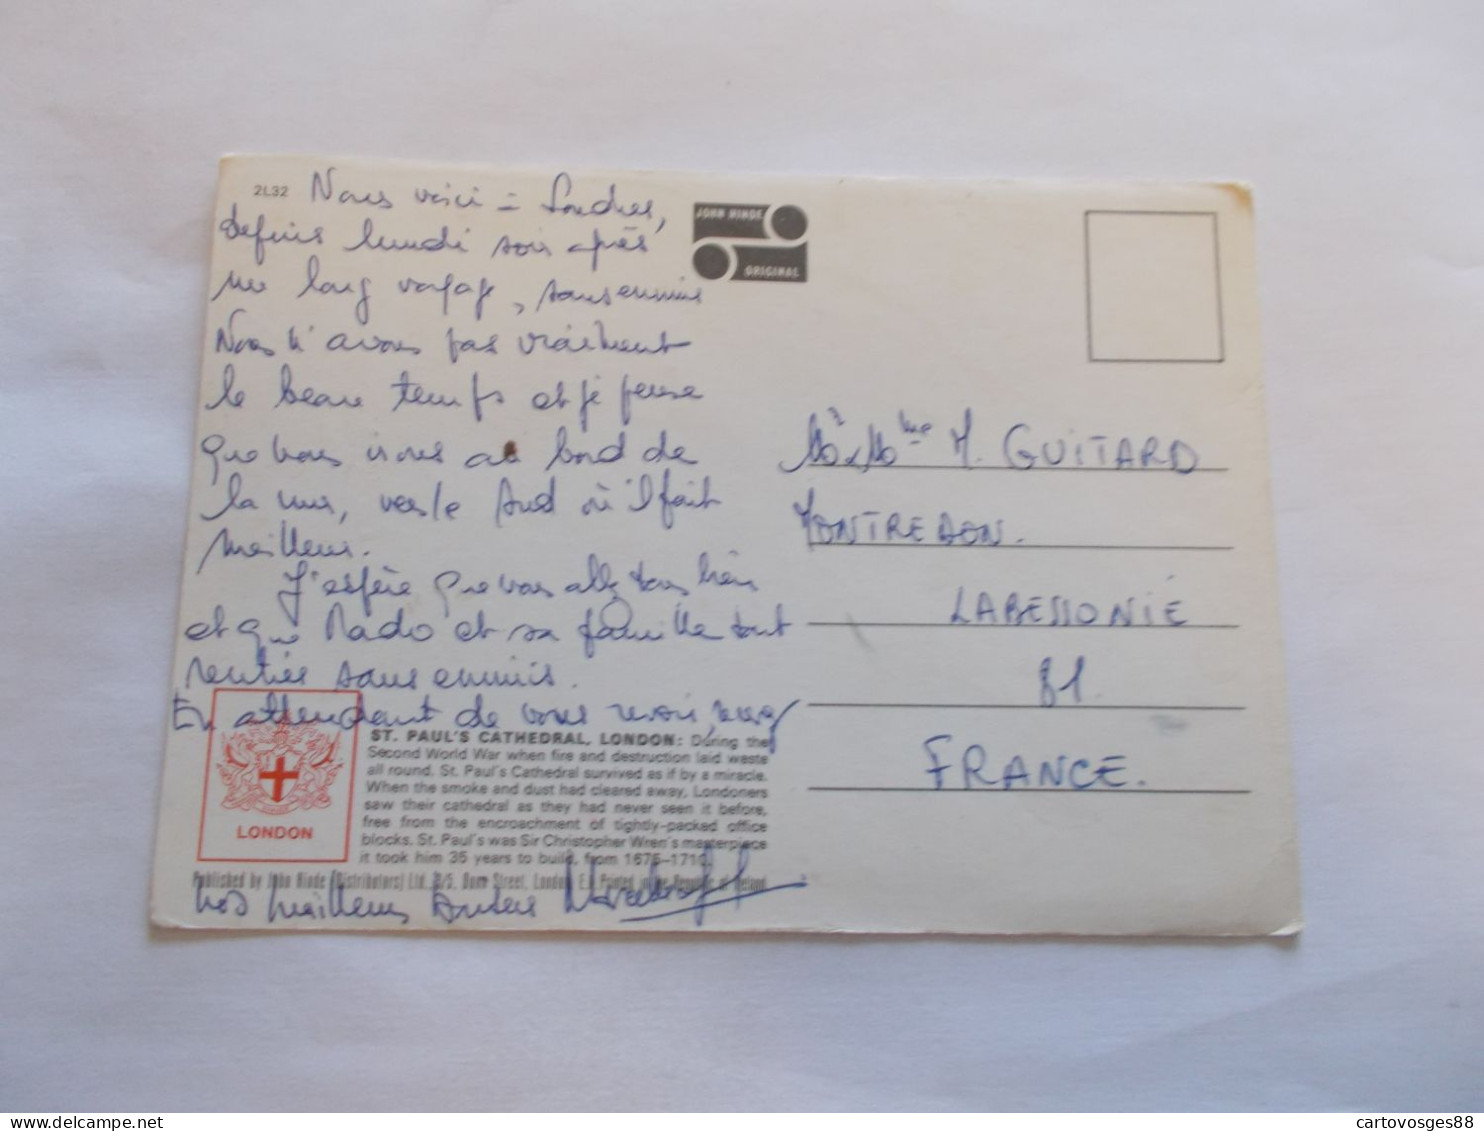 2L32
Nous voici à Londres,
depuis lundi soir après
un long voyage, sans ennuis
Nous n'avons pas vraiment
le beau temps et je pense
que nous irons au bord de
la mer, vers le Sud où il fait
meilleur.
J'espère que vous allez tous bien
et que Mado et sa famille sont
rentrés sans ennuis.
En attendant de vous revoir, recevez
nos meilleurs baisers
JOHN HINDE
ORIGINAL
LONDON
ST. PAUL'S CATHEDRAL, LONDON: During the
Second World War when fire and destruction laid waste
all round, St. Paul's Cathedral survived as if by a miracle.
When the smoke and dust had cleared away, Londoners
saw their cathedral as they had never seen it before,
free from the encroachment of tightly-packed office
blocks. St. Paul's was Sir Christopher Wren's masterpiece
it took him 35 years to build, from 1675–1710.
Published by John Hinde (Distributors) Ltd. Street, London, E. Printed in the Republic of Ireland
Mr Mme M. GUITARD
MONTREDON.
LABESSONIÉ
81.
FRANCE.
cartovosges88